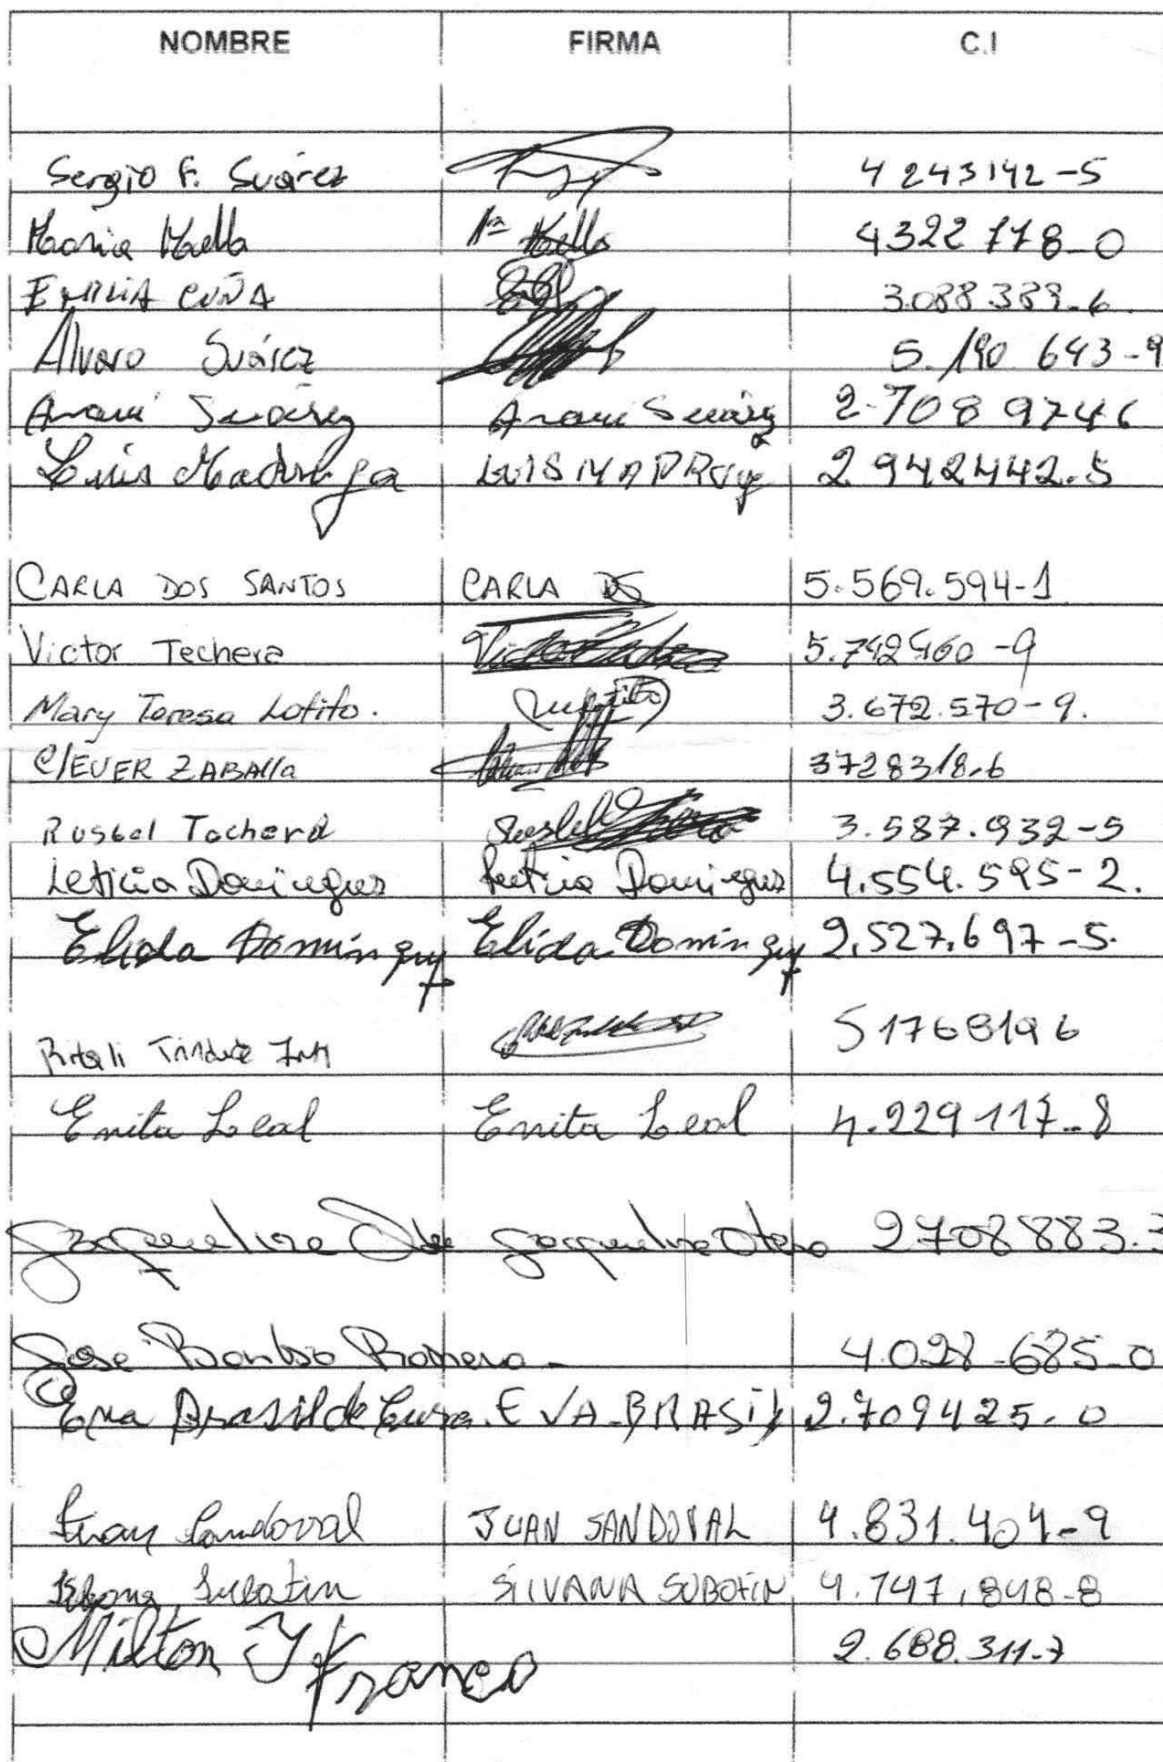 NOMBRE FIRMA C.I
Sergio F. Suárez 4 243142-5
Maella Maella 4322778-0
EMILIA CUÑA 3.088.389-6
Alvaro Suárez 5.190 643-9
Suárez Suárez 2.708 9746
Luis Madruga LUIS MADRUga 2 942442.5
CARLA DOS SANTOS CARLA DS 5.569.594-1
Victor Techera 5.742460-9
Mary Teresa Lotito. 3.672.570-9.
ClEVER ZABAlla 3728318.6
Rusbel Techera 3.587.932-5
Leticia Domingues Leticia Domingues 4.554.595-2.
Elida Dominguez Elida Dominguez 2,527.697-5.
51768196
Enita Leal Enita Leal 4.229117-8
Jacqueline Otero Jacqueline Otero 2708883.3
Jose Romero 4.028-685-0
Eva Brasil de EVA-BRASiL 2.709425.0
Juan Sandoval JUAN SANDOVAL 4.831.404-9
SilVANA 4.747,848-8
Milton Franco 2.688.311-7